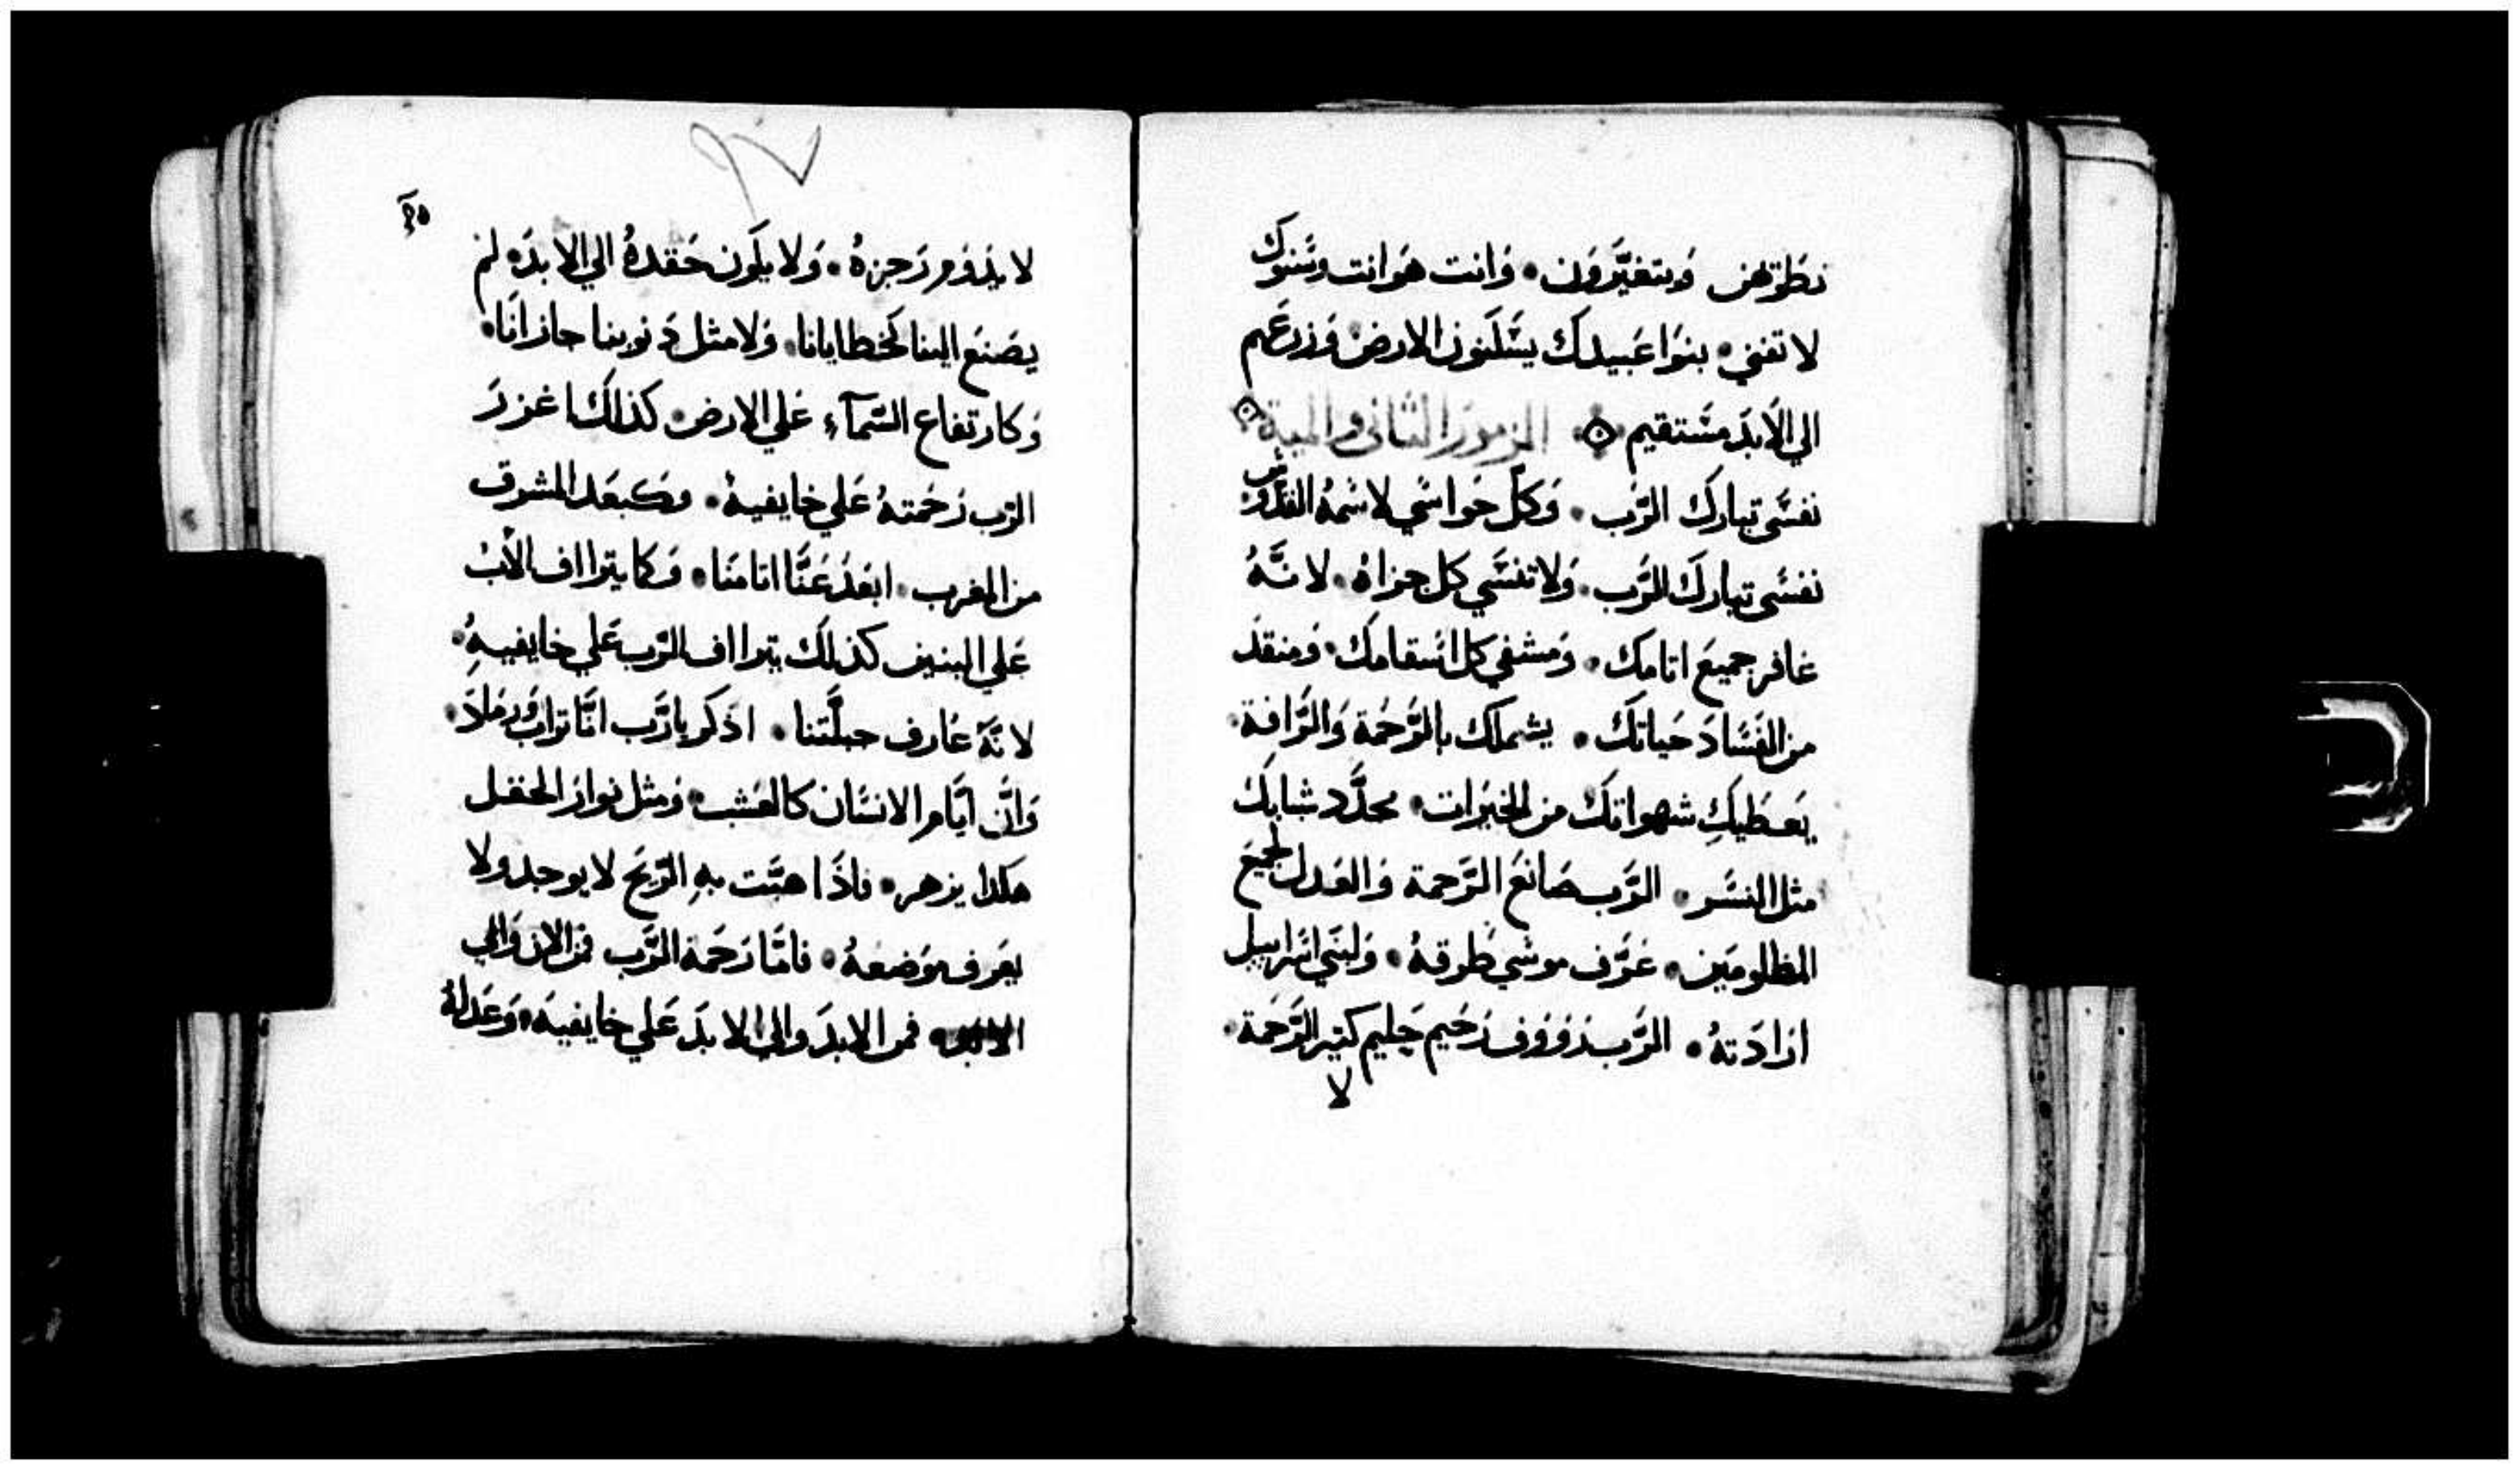 تطوتهن ويتغيَّرون • وَانت هَوانت وسَنوك
لا تفني • بنوا عَبيدك يسَّكنون الارض وَزرعَهم
الي الاَبدَ مسَتقيم • المزمور الثانى والمية
نفسَي تبارك الرَّب • وَكلّ حَواسَي لاسَمهُ القدوس
نفسَي تباركَ الرَّب • وَلا تنسَي كل جزاهُ • لانَّهُ
غافر جميعَ اثامك • وَمشفي كل اسَقامك • وَمنقدَ
من الفسَادَ حَياتك • يشملك بالرَّحَمة وَالرَّافة •
يَعطيكِ شهواتك من الخيرات • يجدَّد شبابكَ
مثل النسَر • الرَّب صَانعَ الرَّحمة وَالعَدل لجميعَ
المظلومَين • عَرَّف موسَي طرقهُ • وَلبنَي اسَراييل
ارادَتهُ • الرَّب رَووف رَحَيم حَليم كتير الرَّحَمة •
لا
لا يدَوم رَجزهُ • وَلا يكَون حَقدهُ الي الابدَ • لم
يصَنعَ الينا كَخطايانا • وَلا مثل دَنوبنا جازانَا •
وَكارتفاع السَّمآء عَلي الارض • كذلكَ اغزرَ
الرَّب رَحَمتهُ عَلي خايفيهُ • وكبعَد المشرق
من المغرب • ابعَدَ عَنَّا اثامنَا • وَكما يتراف الاَبُ
عَلي البنين كذلكَ يترااف الرَّب عَلي خايفيهِ •
لانَّهَ عَارف جبلَّتنا • اذَكر يارَّب انَّا تراب وَرمادَ •
وَانَّ ايَّام الانسَان كالعَشب • وَمثل نوار الحَقل
هكدا يزهر • فاذَا هبَّت بهِ الرَّيحَ لا يوجد ولا
يعَرف موَضعهُ • فامَّا رَحَمة الرَّب فمن الان وَالي
الابد • فمن الابدَ والي الابدَ عَلي خايفيهَ • وَعَدلهُ